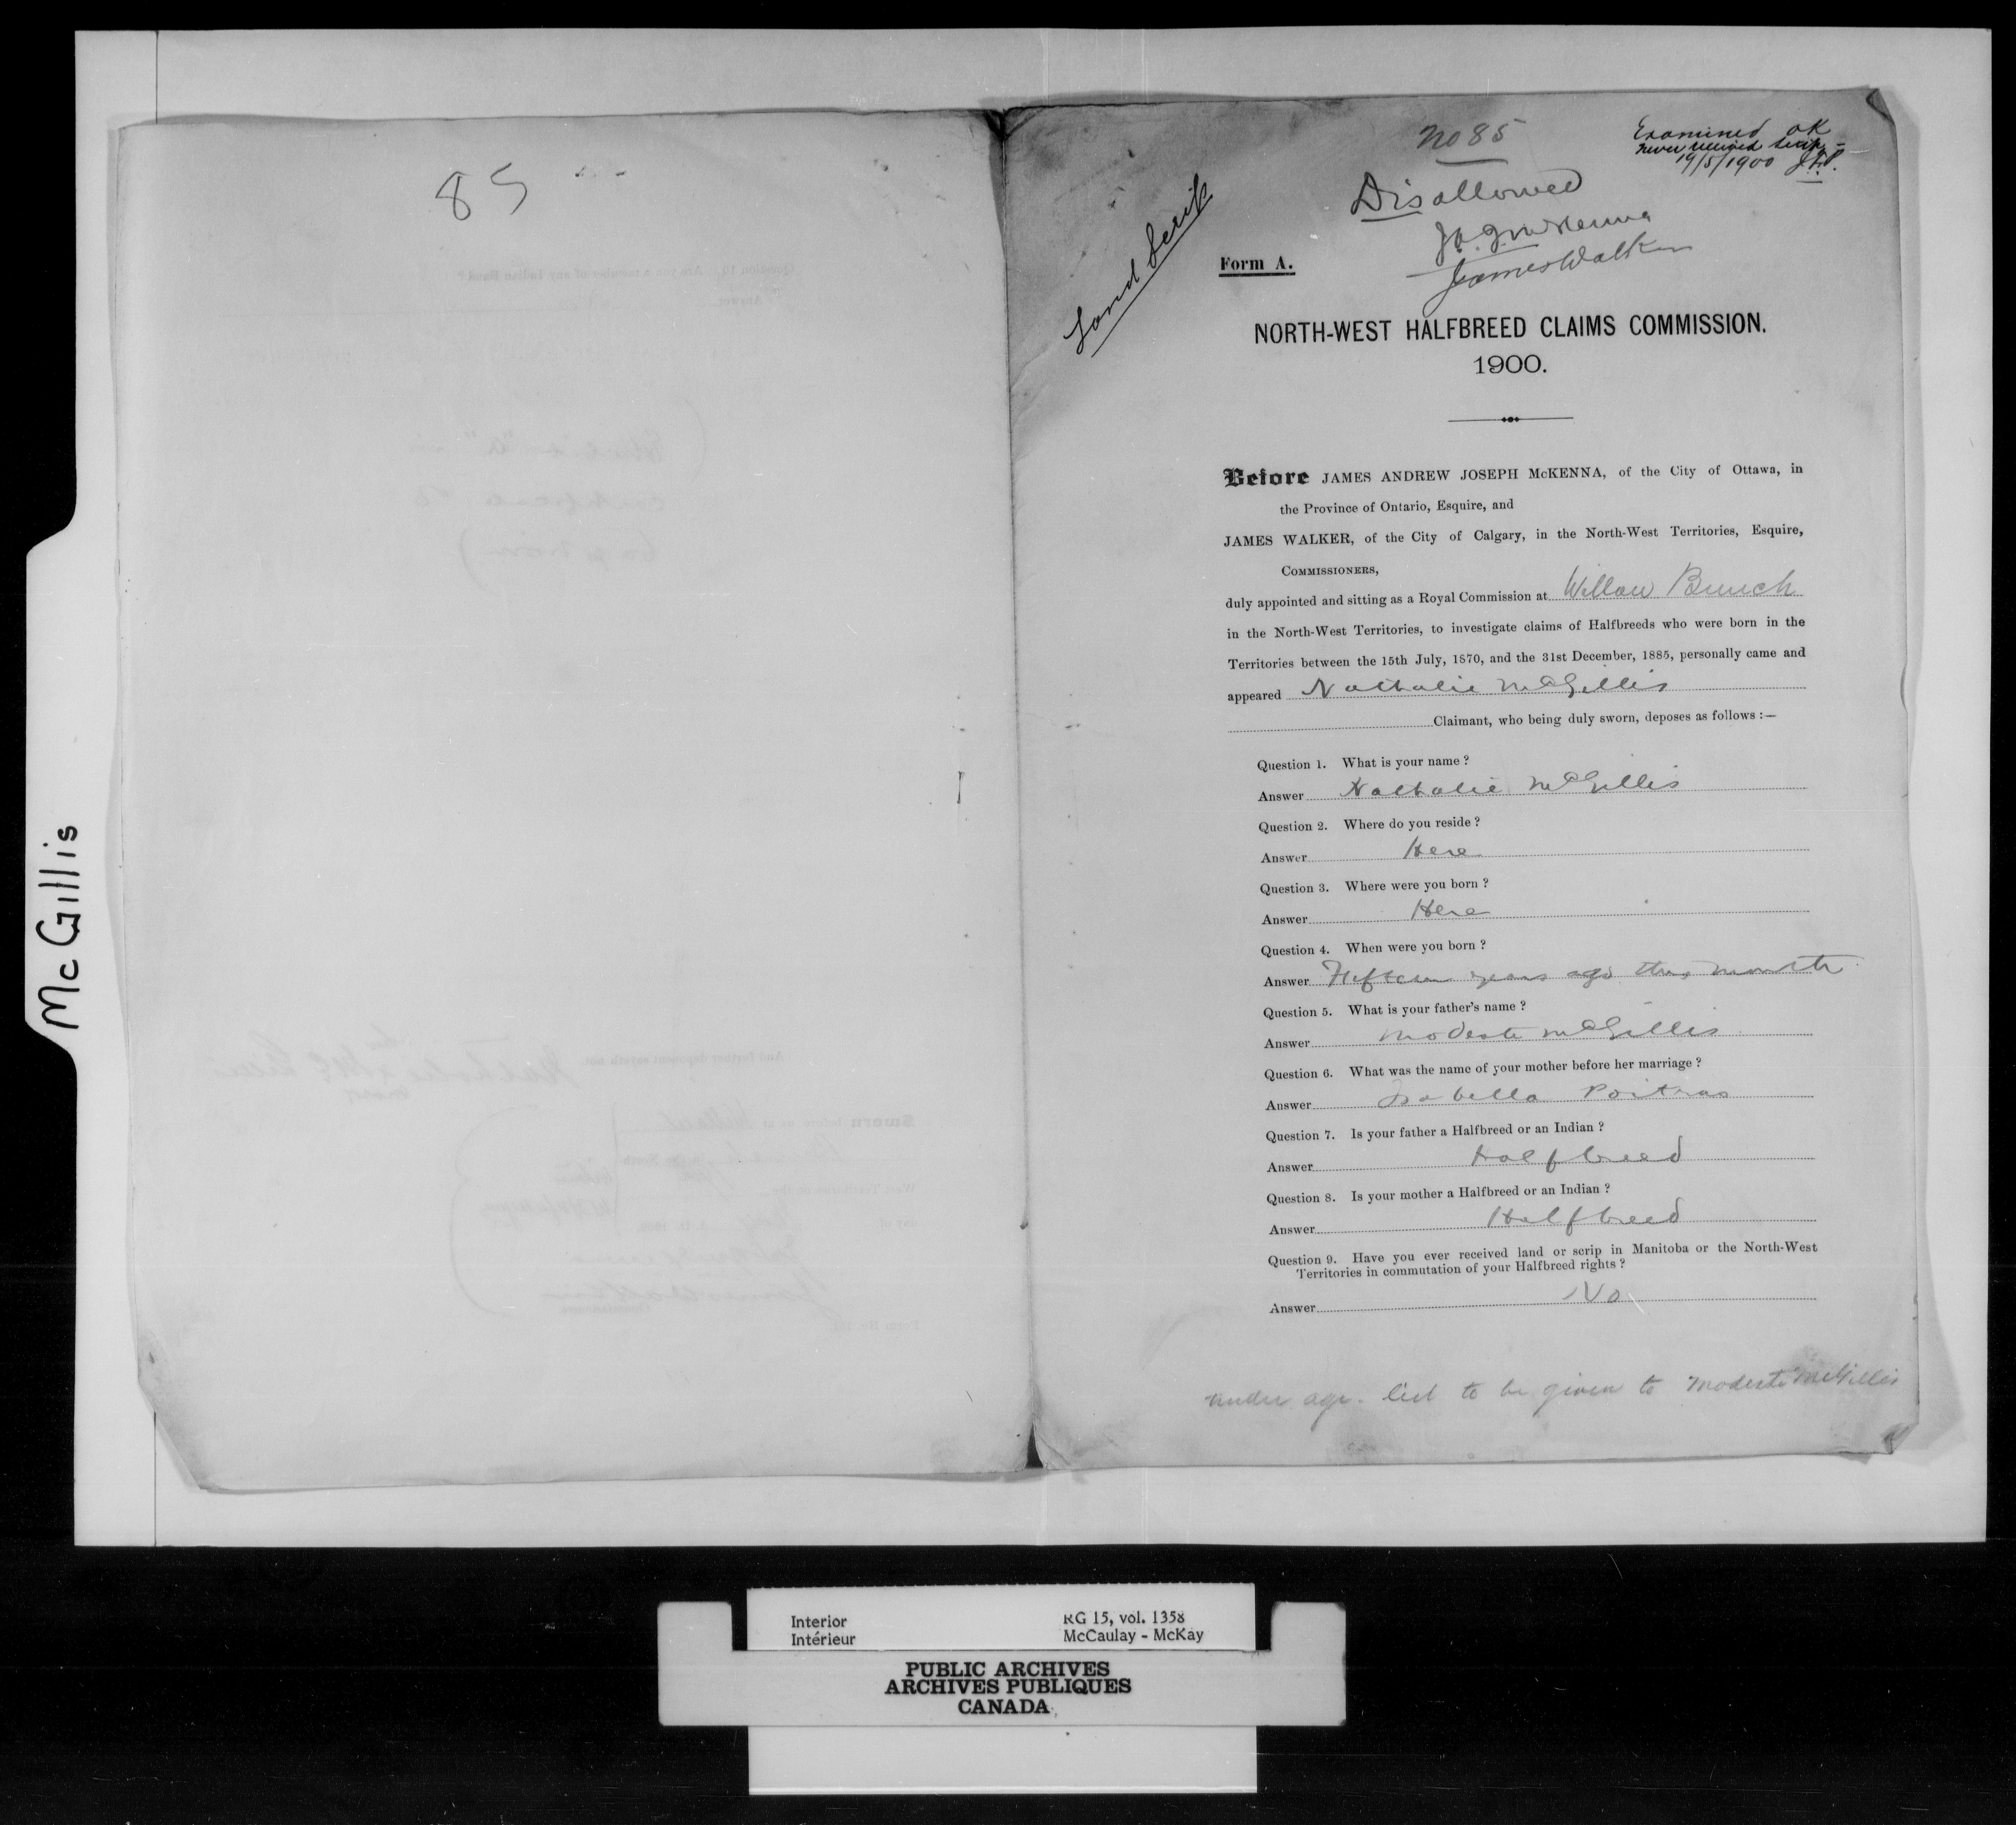 McGillis
85
No 85
Examined OK
never received scrip -
19/5/1900 J.F.P.
Disallowed
J.A.J. McKenna
James Walker
Land Scrip
Form A.
NORTH-WEST HALFBREED CLAIMS COMMISSION.
1900.
Before JAMES ANDREW JOSEPH McKENNA, of the City of Ottawa, in
the Province of Ontario, Esquire, and
JAMES WALKER, of the City of Calgary, in the North-West Territories, Esquire,
COMMISSIONERS,
duly appointed and sitting as a Royal Commission at Willow Bunch
in the North-West Territories, to investigate claims of Halfbreeds who were born in the
Territories between the 15th July, 1870, and the 31st December, 1885, personally came and
appeared Nathalie McGillis
Claimant, who being duly sworn, deposes as follows :—
Question 1. What is your name ?
Answer Nathalie McGillis
Question 2. Where do you reside ?
Answer Here
Question 3. Where were you born ?
Answer Here
Question 4. When were you born ?
Answer Fifteen years ago this month
Question 5. What is your father's name ?
Answer Modeste McGillis
Question 6. What was the name of your mother before her marriage ?
Answer Isabella Poitras
Question 7. Is your father a Halfbreed or an Indian ?
Answer Halfbreed
Question 8. Is your mother a Halfbreed or an Indian ?
Answer Halfbreed
Question 9. Have you ever received land or scrip in Manitoba or the North-West
Territories in commutation of your Halfbreed rights ?
Answer No
under age. to be given to Modeste McGillis
Interior
Intérieur
RG 15, vol. 1358
McCaulay - McKay
PUBLIC ARCHIVES
ARCHIVES PUBLIQUES
CANADA